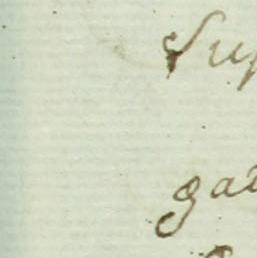 Sup
gat